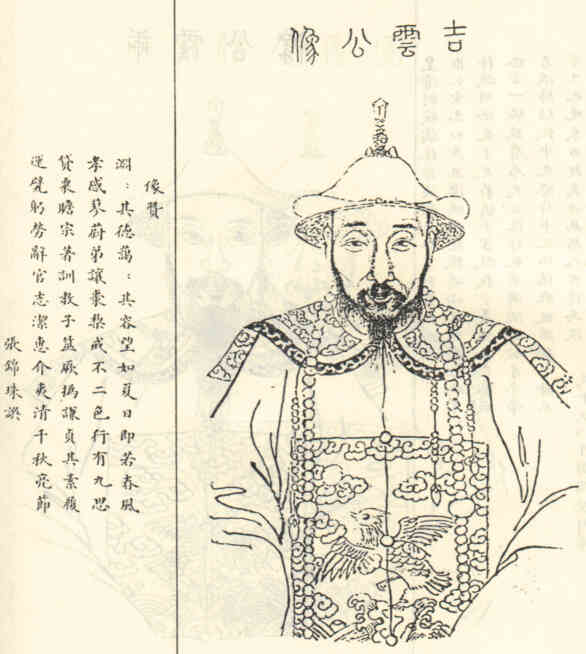 吉雲公像
像贊
淵:其德藹:其容望如夏日即若春風
孝感蓼蔚弟讓棗梨戒不二色行有九思
貸粟贍宗著訓教子益厥撝謙貞其素履
運甓躬勞辭官志潔惠介夷清千秋亮節
張錦珠譔